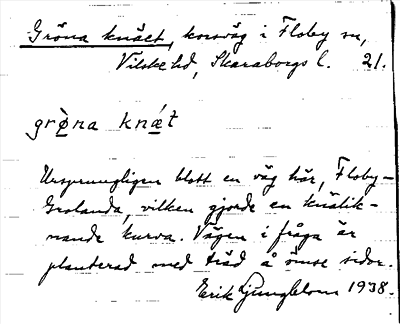 Gröna knäet, korsväg i Floby sn,
Vilske hd, Skaraborgs l. 21.
grö̀na knǽt
Ursprungligen blott en väg här, Floby-
Grolanda, vilken gjorde en knälik-
nande kurva. Vägen i fråga är
planterad med träd å ömse sidor.
Erik Ljungblom 1938.